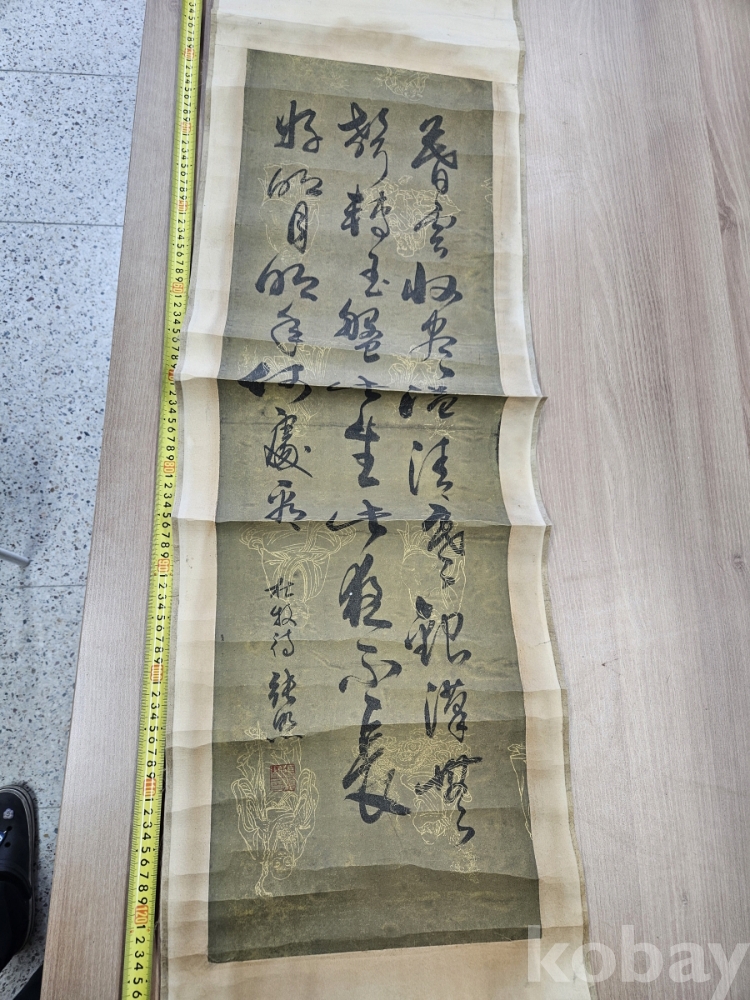 暮雲收盡溢清寒銀漢無
聲轉玉盤此生此夜不長
好明月明年何處看
杜牧詩 張照
kobay